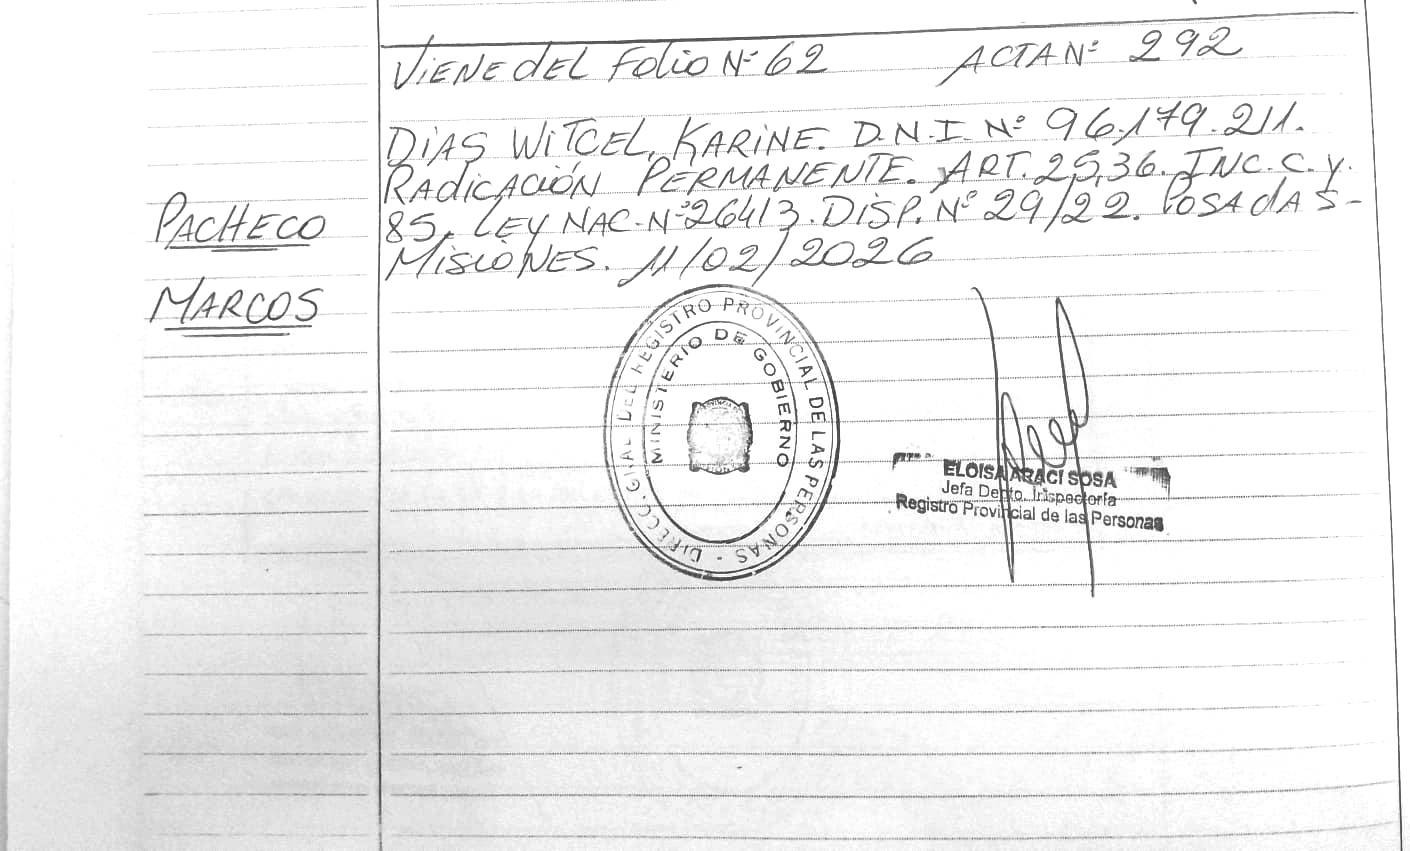 ViENE dEL Folio Nº 62 ACTA Nº 292
DiAS WiTCEL, KARiNE. D.N.I. Nº 96.179.211.
RAdiCACiÓN PERMANENTE. ART. 25,36. INC. C. Y.
PACHECO
85. LEY NAC. Nº 26413. DiSP. Nº 29/22. POSAdAS-
MiSiONES. 11/02/2026
MARCOS
DIRECC. GRAL DEL REGISTRO PROVINCIAL DE LAS PERSONAS -
MINISTERIO DE GOBIERNO
ELOISA ARACI SOSA
Jefa Depto. Inspectoría
Registro Provincial de las Personas